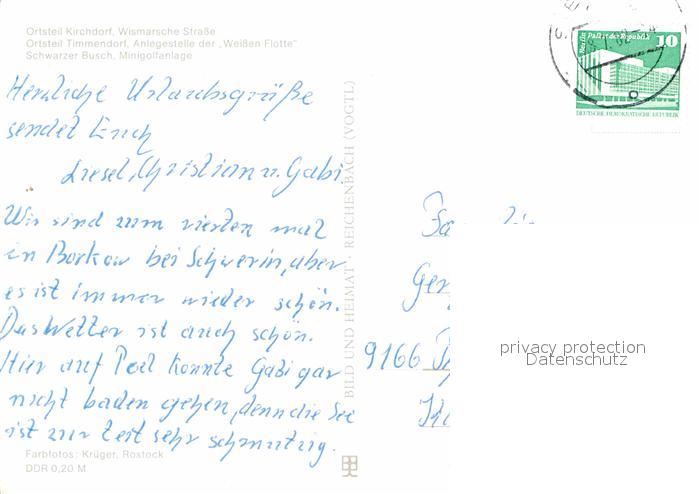 Ortsteil Kirchdorf, Wismarsche Straße
Ortsteil Timmendorf, Anlegestelle der „Weißen Flotte"
Schwarzer Busch, Minigolfanlage
Herzliche Urlaubsgrüße
sendet Euch
Liesel, Christian u. Gabi.
Wir sind zum vierten mal
in Borkow bei Schwerin, aber
es ist immer wieder schön.
Das Wetter ist auch schön.
Hier auf Poel konnte Gabi gar
nicht baden gehen, denn die See
ist zur Zeit sehr schmutzig.
Farbfotos: Krüger, Rostock
DDR 0,20 M
BILD UND HEIMAT · REICHENBACH (VOGTL)
Berlin Palast der Republik
10
DEUTSCHE DEMOKRATISCHE REPUBLIK
9166
privacy protection
Datenschutz